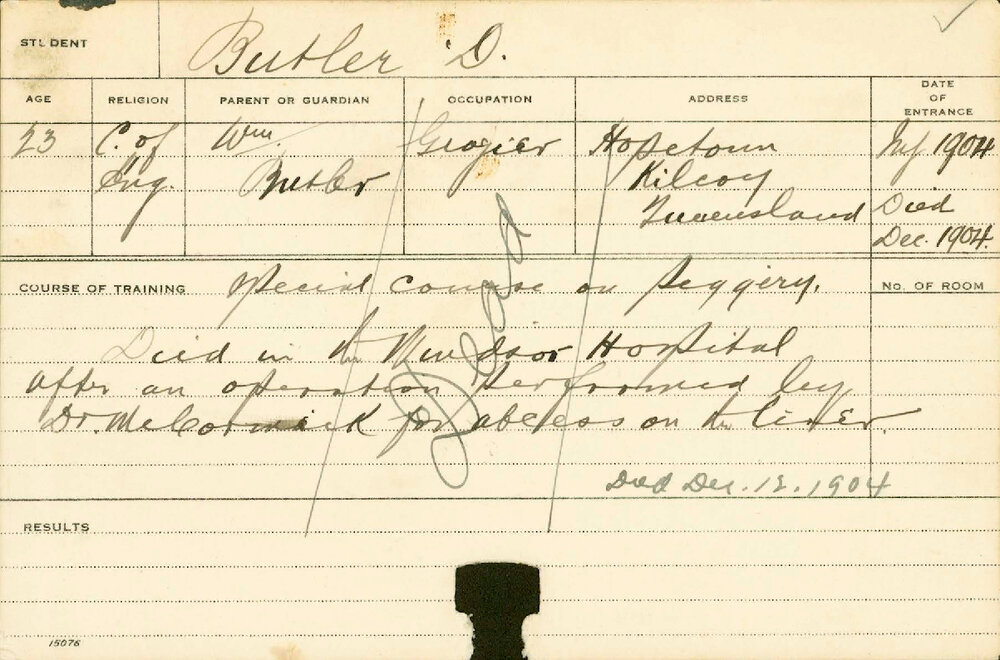 STUDENT Butler D.
AGE RELIGION PARENT OR GUARDIAN OCCUPATION ADDRESS DATE OF ENTRANCE
23 C. of Wm. Grazier Hopetoun July 1904
Eng. Butler Kilcoy
Queensland Died
Dec. 1904.
COURSE OF TRAINING Special course on piggery. No. OF ROOM
Died in the Windsor Hospital
after an operation performed by
Dr. McCormick for abcess on the liver.
Dead
Died Dec. 12. 1904
RESULTS
15076